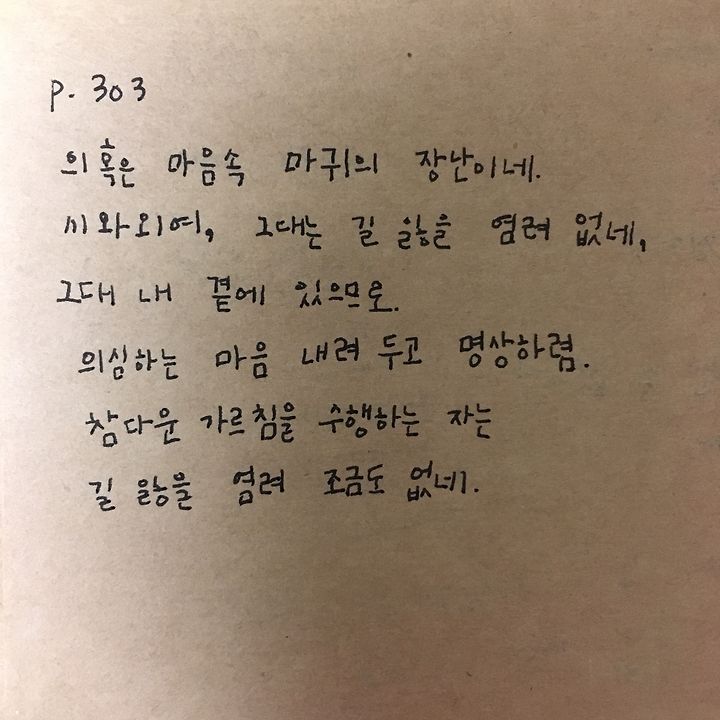 p. 303
의혹은 마음속 마귀의 장난이네.
씨와외여, 그대는 길 잃을 염려 없네,
그대 내 곁에 있으므로.
의심하는 마음 내려 두고 명상하렴.
참다운 가르침을 수행하는 자는
길 잃을 염려 조금도 없네.